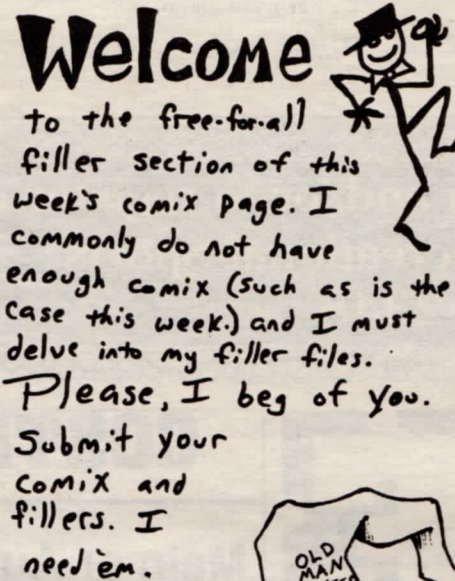 Welcome
to the free-for-all
filler section of this
week's comix page. I
commonly do not have
enough comix (such as is the
case this week.) and I must
delve into my filler files.
Please, I beg of you.
Submit your
comix and
fillers. I
need 'em.
OLD
MAN